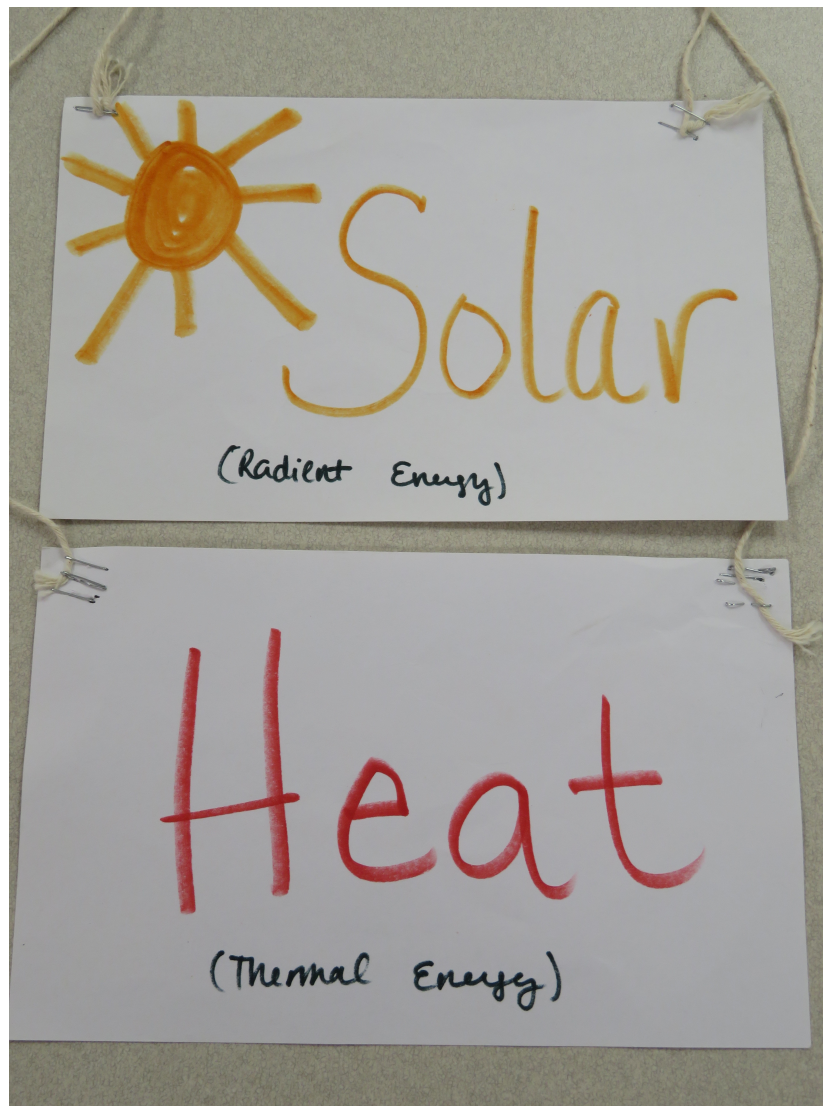 Solar
(Radient Energy)
Heat
(Thermal Energy)